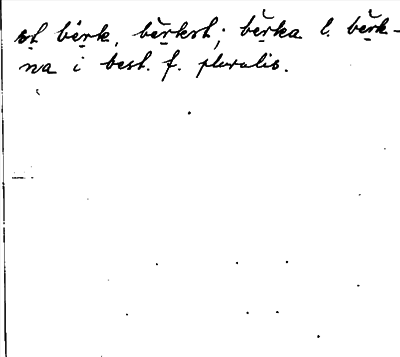 et bĕrk, bĕrket; bĕrka l. bĕrk-
na i best. f. pluralis.